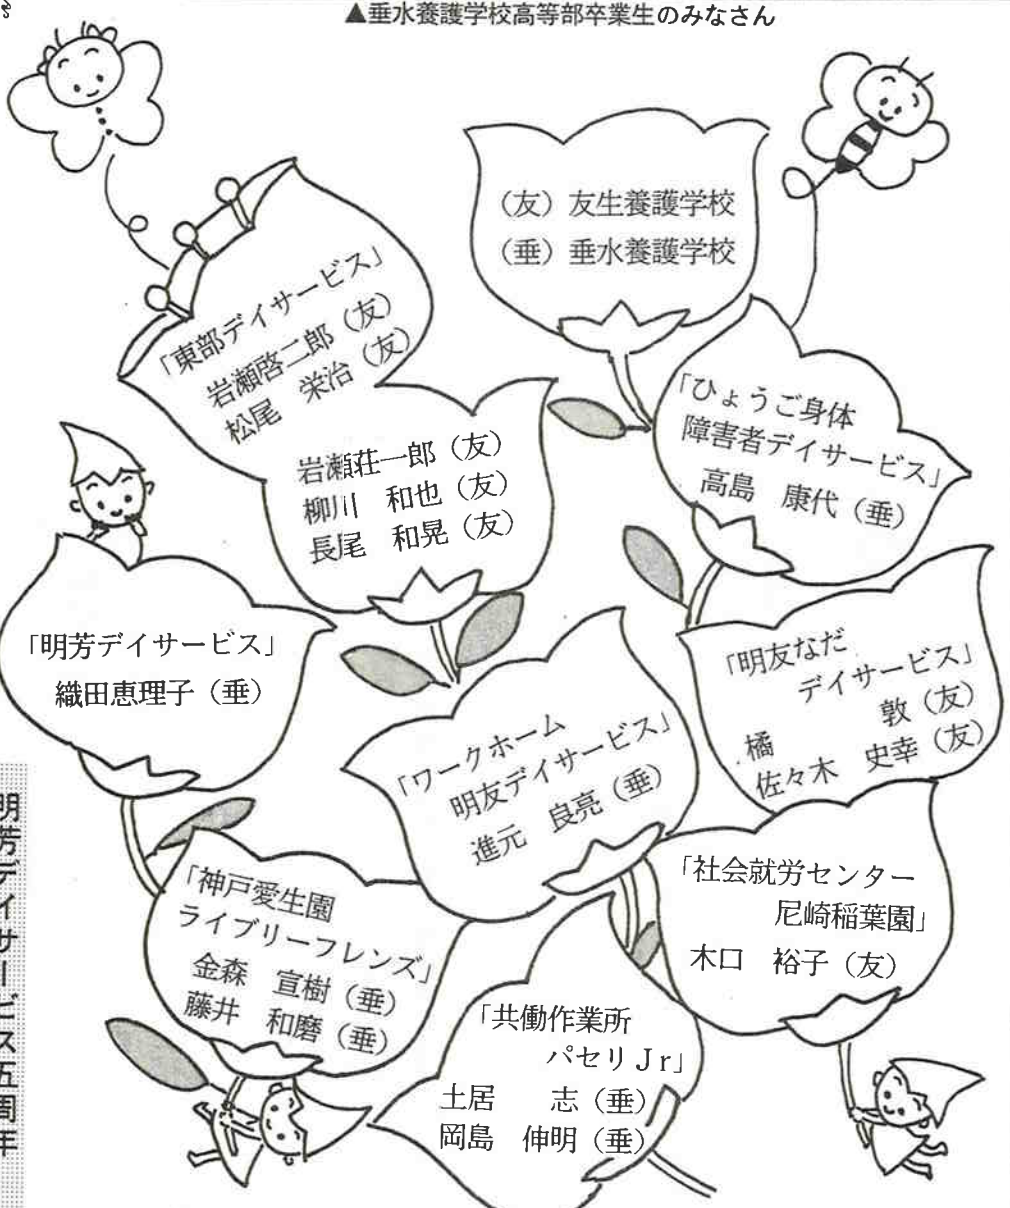 ▲垂水養護学校高等部卒業生のみなさん
（友）友生養護学校
（垂）垂水養護学校
「東部デイサービス」
岩瀬啓二郎（友）
松尾　栄治（友）
岩瀬荘一郎（友）
柳川　和也（友）
長尾　和晃（友）
「ひょうご身体
障害者デイサービス」
高島　康代（垂）
「明芳デイサービス」
織田恵理子（垂）
「明友なだ
デイサービス」
橘　　　敦（友）
佐々木　史幸（友）
「ワークホーム
明友デイサービス」
進元　良亮（垂）
「神戸愛生園
ライブリーフレンズ」
金森　宣樹（垂）
藤井　和磨（垂）
「社会就労センター
尼崎稲葉園」
木口　裕子（友）
「共働作業所
パセリＪｒ」
土居　　志（垂）
岡島　伸明（垂）
明芳デイサービス五周年